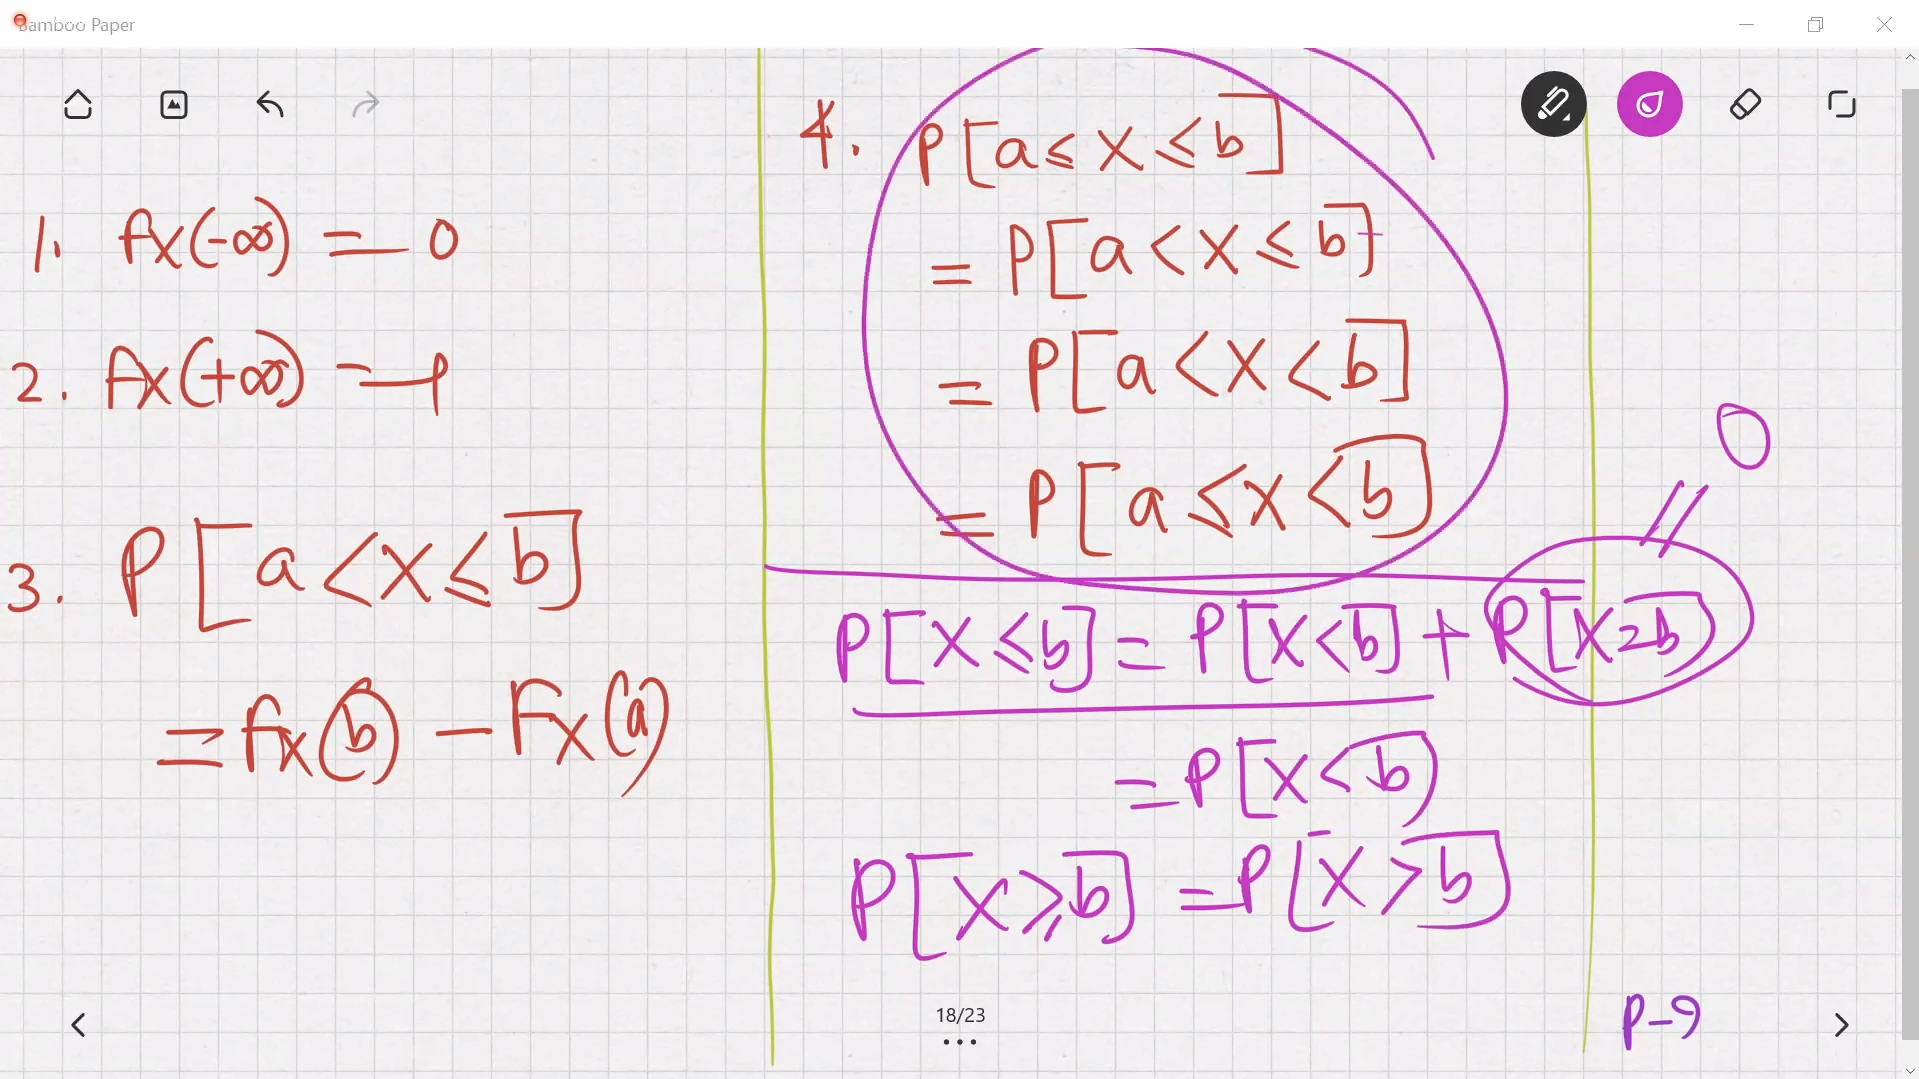 Bamboo Paper
1. fx(-∞) = 0
2. fx(+∞) = 1
3. P[a < X ≤ b]
= fx(b) - Fx(a)
4. P[a ≤ X ≤ b]
= P[a < X ≤ b]
= P[a < X < b]
= P[a ≤ X < b]
0
P[X ≤ b] = P[X < b] + P[X = b]
= P[X < b]
P[X ≥ b] = P[X > b]
P-9
18/23